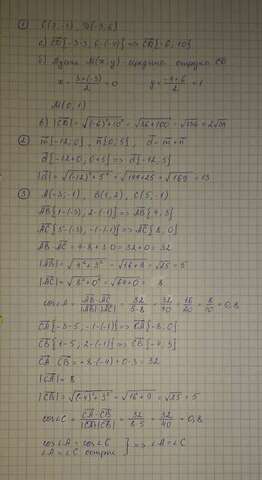 ① C(3, -1), D(-3, 6)
а) CD{-3-3, 6-(-4)} => CD{-6, 10}
б) Пусть M(x, y) середина отрезка CD
x = (3+(-3))/2 = 0 y = (-4+6)/2 = 1
M(0, 1)
в) |CD| = √((-6)²+10²) = √(36+100) = √136 = 2√34
② m{-12, 0}, n{0, 5}, d = m+n
d{-12+0, 0+5} => d{-12, 5}
|d| = √((-12)²+5²) = √(144+25) = √169 = 13
③ A(-3, -1), B(1, 2), C(5, -1)
AB{1-(-3), 2-(-1)} => AB{4, 3}
AC{5-(-3), -1-(-1)} => AC{8, 0}
AB·AC = 4·8+3·0 = 32+0 = 32
|AB| = √(4²+3²) = √(16+9) = √25 = 5
|AC| = √(8²+0²) = √(64+0) = 8
cos∠A = AB·AC/|AB||AC| = 32/5·8 = 32/40 = 16/20 = 8/10 = 0,8
CA{-3-5, -1-(-1)} => CA{-8, 0}
CB{1-5, 2-(-1)} => CB{-4, 3}
CA·CB = +8·(-4)+0·3 = 32
|CA| = 8
|CB| = √((-4)²+3²) = √(16+9) = √25 = 5
cos∠C = CA·CB/|CA||CB| = 32/8·5 = 32/40 = 0,8
cos∠A = cos∠C
∠A = ∠C острые } => ∠A = ∠C